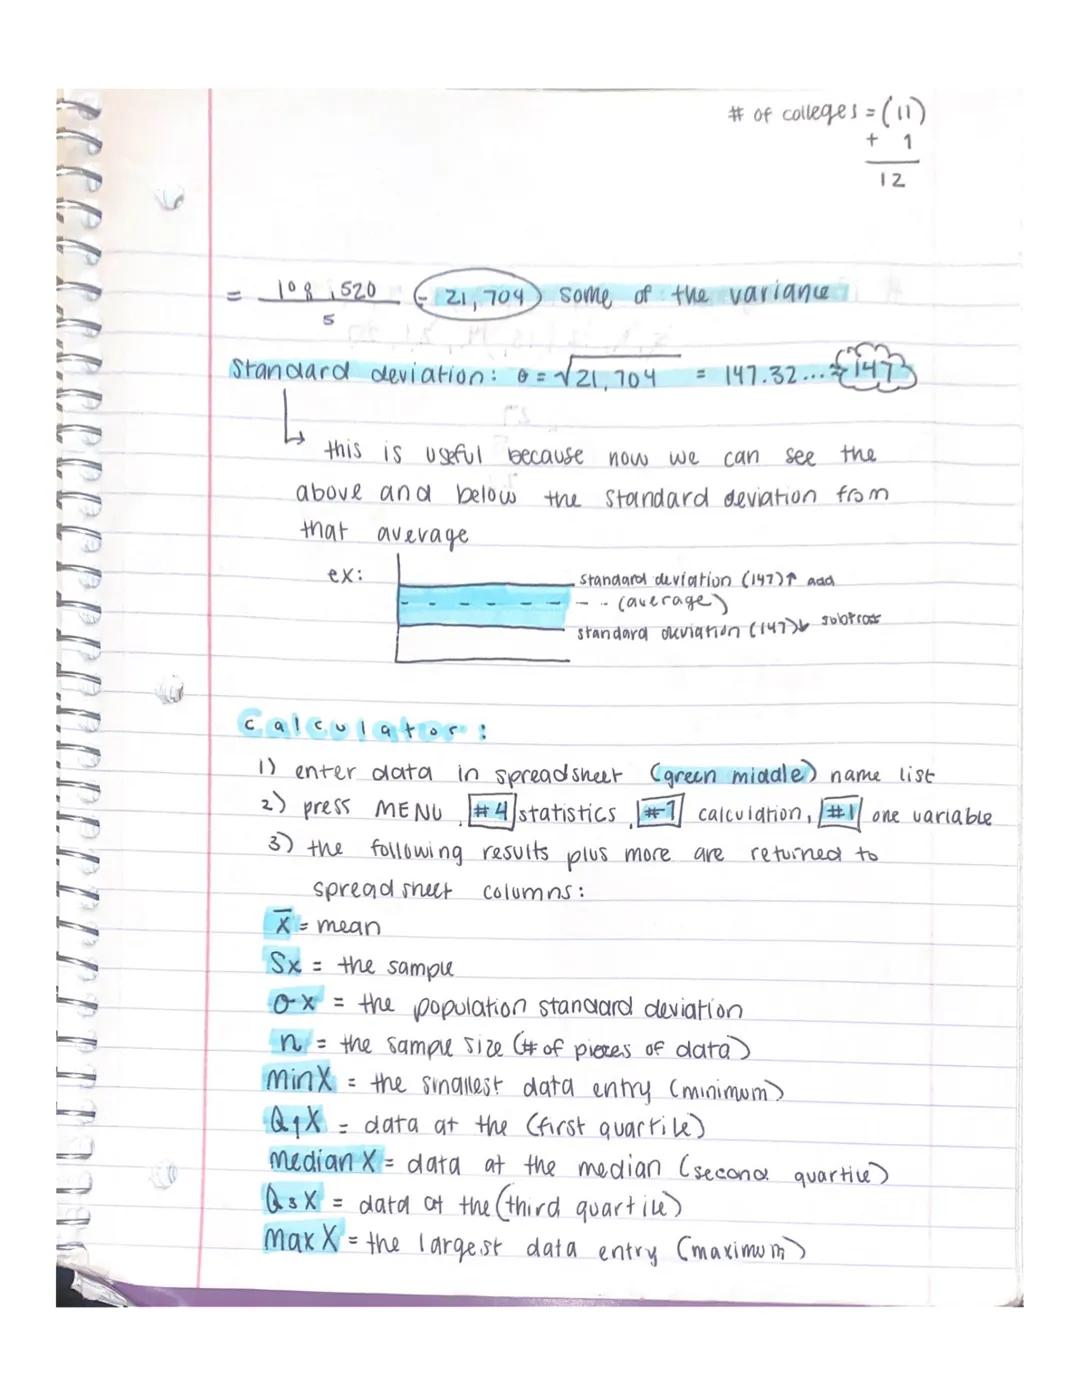 # of colleges = (11)
+ 1
12
= 108,520 = 21,704 some of the variance
5
Standard deviation: θ = √21,704 = 147.32... ≈ 147
this is useful because now we can see the
above and below the standard deviation from
that average
ex:
standard deviation (147)↑ add
- - (average)
standard deviation (147)↓ subtract
Calculator:
1) enter data in spreadsheet (green middle) name list
2) press MENU, #4 statistics, #1 calculation, #1 one variable
3) the following results plus more are returned to
spreadsheet columns:
x̄ = mean
Sx = the sample
σx = the population standard deviation
n = the sample size (# of pieces of data)
minX = the smallest data entry (minimum)
Q1X = data at the (first quartile)
medianX = data at the median (second quartile)
Q3X = data at the (third quartile)
maxX = the largest data entry (maximum)